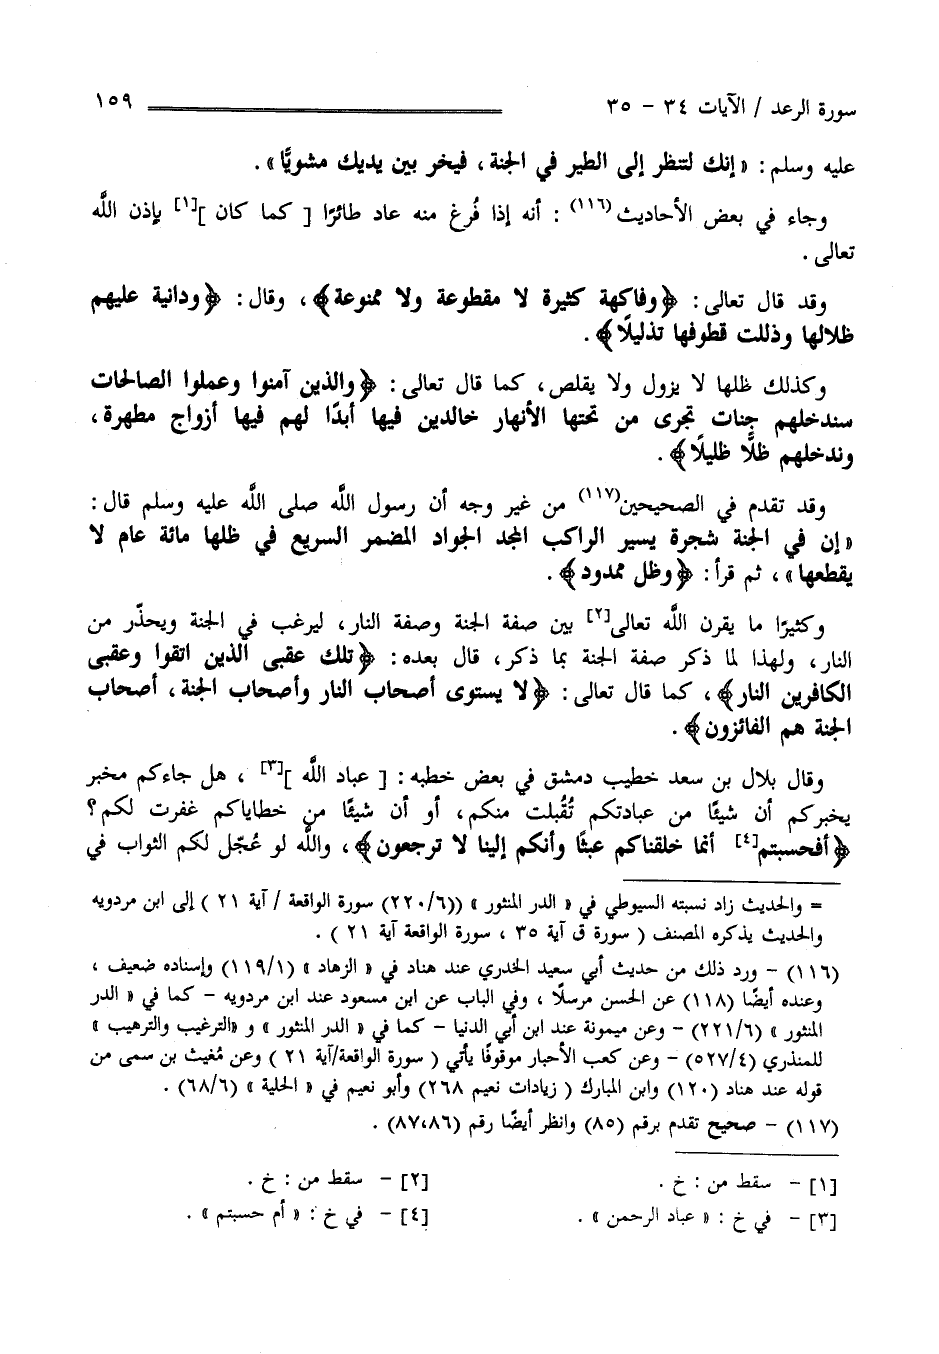 سورة الرعد / الآيات ٣٤ - ٣٥ ١٥٩
عليه وسلم : « إنك لتنظر إلى الطير في الجنة ، فيخر بين يديك مشويًّا » .
وجاء في بعض الأحاديث(١١٦) : أنه إذا فُرغ منه عاد طائرًا [ كما كان ][١] بإذن اللَّه
تعالى .
وقد قال تعالى : ﴿ وفاكهة كثيرة لا مقطوعة ولا ممنوعة ﴾ ، وقال : ﴿ ودانية عليهم
ظلالها وذللت قطوفها تذليلًا ﴾ .
وكذلك ظلها لا يزول ولا يقلص ، كما قال تعالى : ﴿ والذين آمنوا وعملوا الصالحات
سندخلهم جنات تجرى من تحتها الأنهار خالدين فيها أبدًا لهم فيها أزواج مطهرة ،
وندخلهم ظلًّا ظليلًا ﴾ .
وقد تقدم في الصحيحين(١١٧) من غير وجه أن رسول اللَّه صلى اللَّه عليه وسلم قال :
« إن في الجنة شجرة يسير الراكب المجد الجواد المضمر السريع في ظلها مائة عام لا
يقطعها » ، ثم قرأ : ﴿ وظل ممدود ﴾ .
وكثيرًا ما يقرن اللَّه تعالى[٢] بين صفة الجنة وصفة النار ، ليرغب في الجنة ويحذّر من
النار ، ولهذا لما ذكر صفة الجنة بما ذكر ، قال بعده : ﴿ تلك عقبى الذين اتقوا وعقبى
الكافرين النار ﴾ ، كما قال تعالى : ﴿ لا يستوى أصحاب النار وأصحاب الجنة ، أصحاب
الجنة هم الفائزون ﴾ .
وقال بلال بن سعد خطيب دمشق في بعض خطبه : [ عباد اللَّه ][٣] ، هل جاءكم مخبر
يخبركم أن شيئًا من عبادتكم تُقُبلت منكم ، أو أن شيئًا من خطاياكم غفرت لكم ؟
﴿ أفحسبتم[٤] أنما خلقناكم عبثًا وأنكم إلينا لا ترجعون ﴾ ، واللَّه لو عُجّل لكم الثواب في
= والحديث زاد نسبته السيوطي في « الدر المنثور » ((٢٢٠/٦) سورة الواقعة / آية ٢١ ) إلى ابن مردويه
والحديث يذكره المصنف ( سورة ق آية ٣٥ ، سورة الواقعة آية ٢١ ) .
(١١٦) - ورد ذلك من حديث أبي سعيد الخدري عند هناد في « الزهاد » (١١٩/١) وإسناده ضعيف ،
وعنده أيضًا (١١٨) عن الحسن مرسلًا ، وفي الباب عن ابن مسعود عند ابن مردويه - كما في « الدر
المنثور » (٢٢١/٦) - وعن ميمونة عند ابن أبي الدنيا - كما في « الدر المنثور » و «الترغيب والترهيب »
للمنذري (٥٢٧/٤) - وعن كعب الأحبار موقوفًا يأتي ( سورة الواقعة/آية ٢١ ) وعن مُغيث بن سمى من
قوله عند هناد (١٢٠) وابن المبارك ( زيادات نعيم ٢٦٨) وأبو نعيم في « الحلية » (٦٨/٦) .
(١١٧) - صحيح تقدم برقم (٨٥) وانظر أيضًا رقم (٨٧،٨٦) .
[١] - سقط من : خ . [٢] - سقط من : خ .
[٣] - في خ : « عباد الرحمن » . [٤] - في خ : « أم حسبتم » .